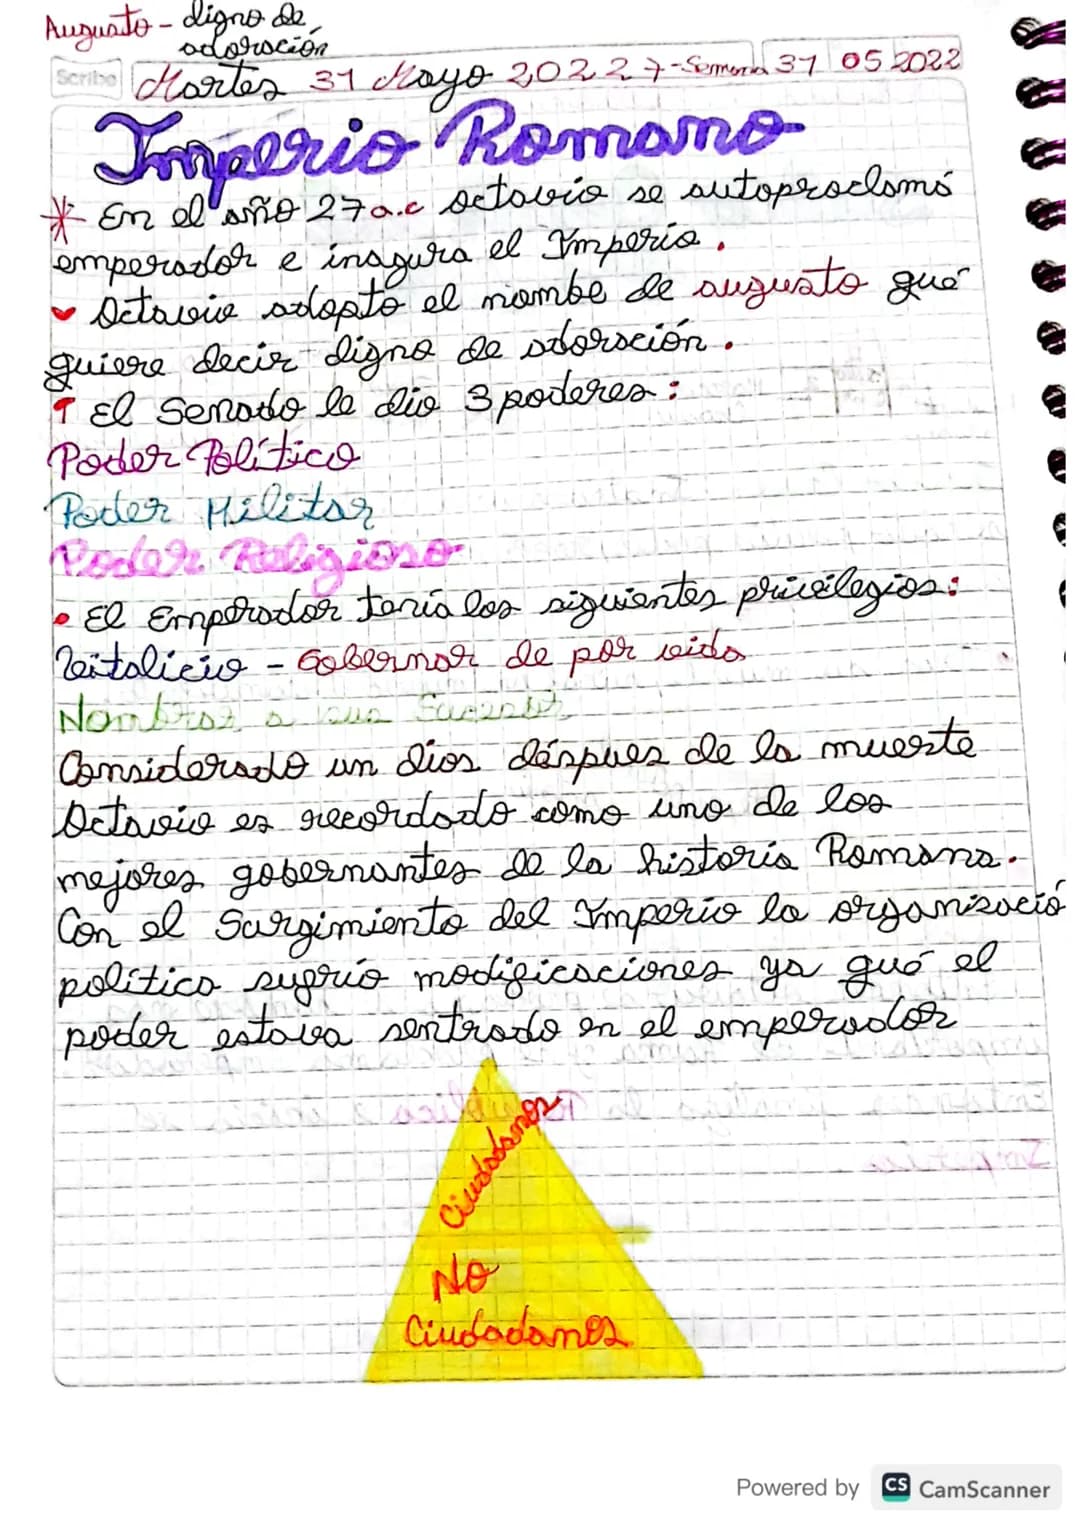 Augusto - digno de
adoración
Scribe Martes 31 Mayo 2022 7-Semana 31 05 2022
Imperio Romano
* En el año 27 a.c octavio se autoproclamó
emperador e inagura el Imperio.
Octavio adopto el nombe de augusto qué
quiere decir digno de adoración.
El Senado le dio 3 poderes:
Poder Político
Poder Militar
Poder Religioso
• El Emperador tenía los siguientes privilegios:
Vitalicio - Gobernar de por vida
Nombrar a sus Sucesor
Considerado un dios déspues de la muerte
Octavio es recordado como uno de los
mejores gobernantes de la historia Romana.
Con el Surgimiento del Imperio la organizació
político sufrío modificaciones ya qué el
poder estava sentrado en el emperador
Ciudadanos
No
Ciudadanos
Powered by CS CamScanner